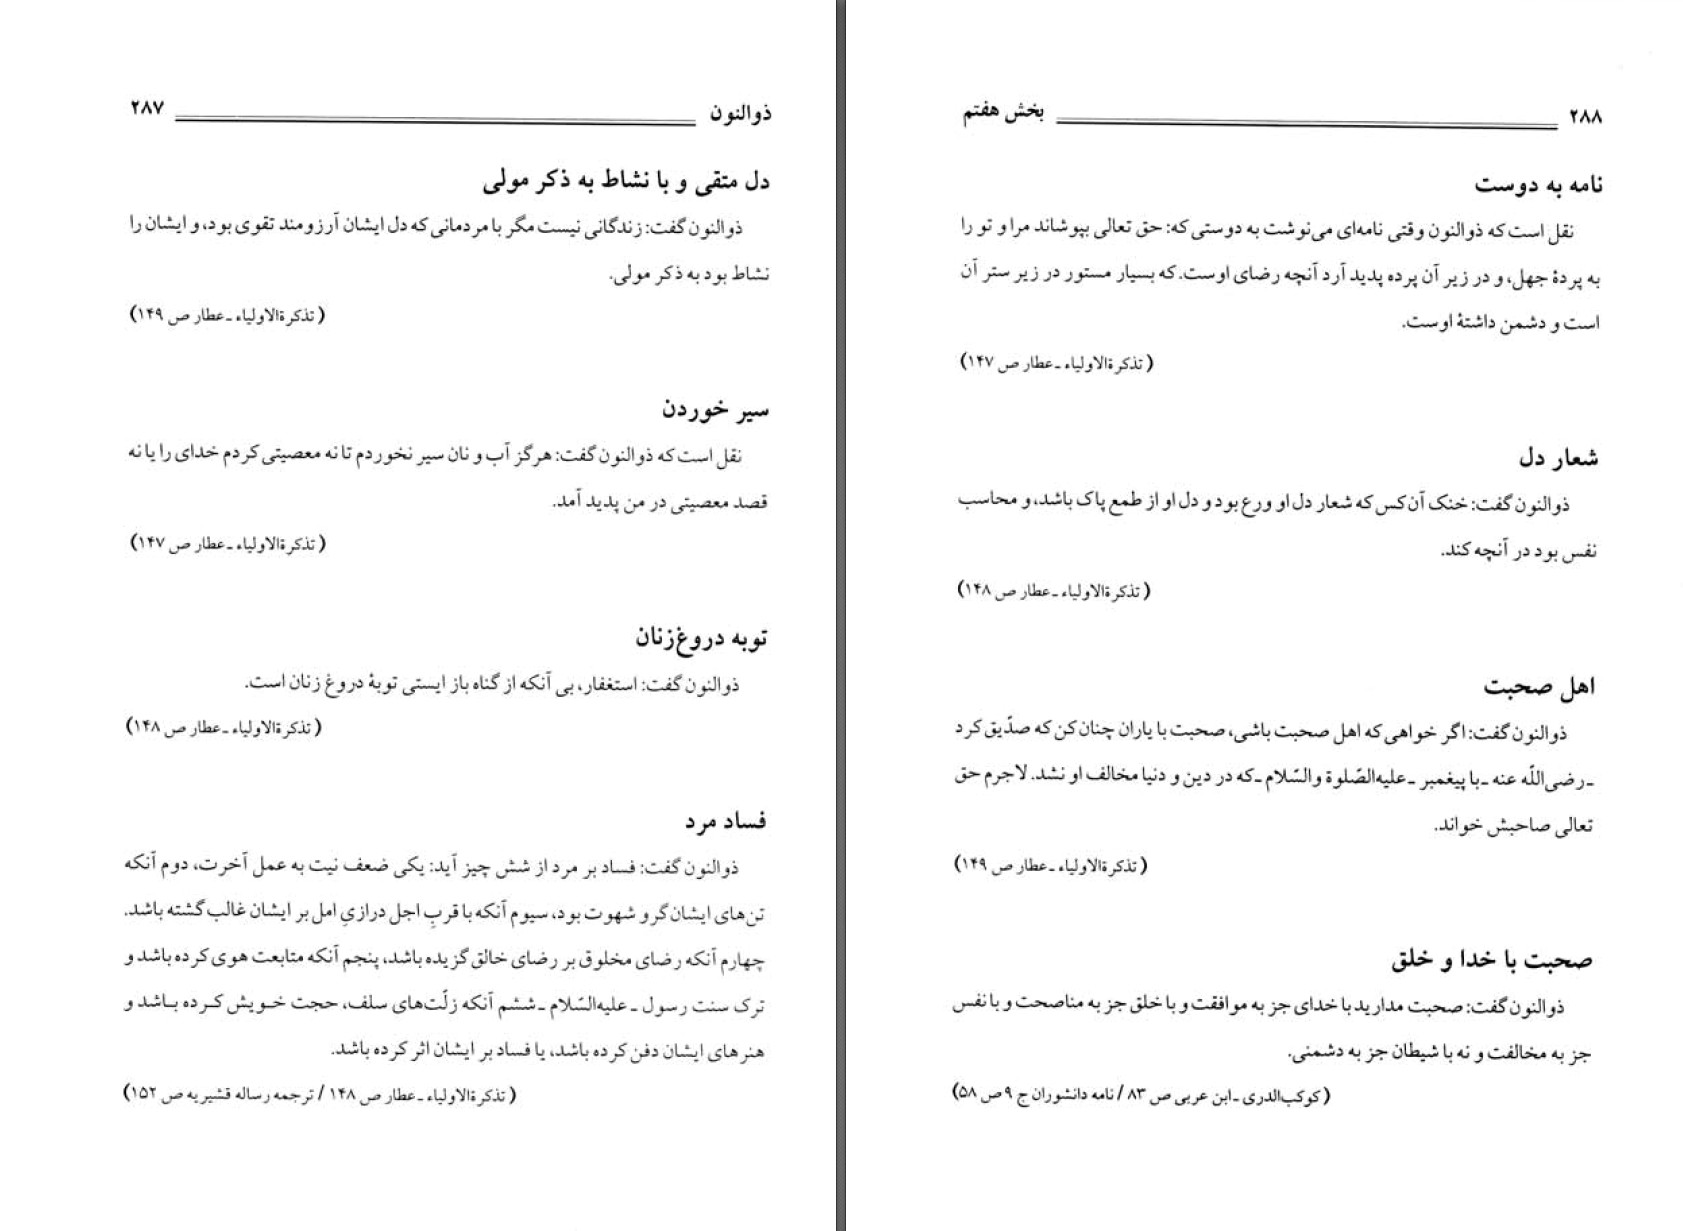 ۲۸۸ بخش هفتم
نامه به دوست
نقل است که ذوالنون وقتی نامه‌ای می‌نوشت به دوستی که: حق تعالی بپوشاند مرا و تو را
به پردهٔ جهل، و در زیر آن پرده پدید آرد آنچه رضای اوست. که بسیار مستور در زیر ستر آن
است و دشمن داشتهٔ اوست.
( تذکرةالاولیاء ـ عطار ص ۱۴۷)
شعار دل
ذوالنون گفت: خنک آن کس که شعار دل او ورع بود و دل او از طمع پاک باشد، و محاسب
نفس بود در آنچه کند.
( تذکرةالاولیاء ـ عطار ص ۱۴۸)
اهل صحبت
ذوالنون گفت: اگر خواهی که اهل صحبت باشی، صحبت با یاران چنان کن که صدّیق کرد
ـ رضی‌اللّه عنه ـ با پیغمبر ـ علیه‌الصّلوة والسّلام ـ که در دین و دنیا مخالف او نشد. لاجرم حق
تعالی صاحبش خواند.
( تذکرةالاولیاء ـ عطار ص ۱۴۹)
صحبت با خدا و خلق
ذوالنون گفت: صحبت مدارید با خدای جز به موافقت و با خلق جز به مناصحت و با نفس
جز به مخالفت و نه با شیطان جز به دشمنی.
( کوکب‌الدری ـ ابن عربی ص ۸۳ / نامه دانشوران ج ۹ ص ۵۸)
ذوالنون ۲۸۷
دل متقی و با نشاط به ذکر مولی
ذوالنون گفت: زندگانی نیست مگر با مردمانی که دل ایشان آرزومند تقوی بود، و ایشان را
نشاط بود به ذکر مولی.
( تذکرةالاولیاء ـ عطار ص ۱۴۹)
سیر خوردن
نقل است که ذوالنون گفت: هرگز آب و نان سیر نخوردم تا نه معصیتی کردم خدای را یا نه
قصد معصیتی در من پدید آمد.
( تذکرةالاولیاء ـ عطار ص ۱۴۷)
توبه دروغ‌زنان
ذوالنون گفت: استغفار، بی آنکه از گناه باز ایستی توبهٔ دروغ زنان است.
( تذکرةالاولیاء ـ عطار ص ۱۴۸)
فساد مرد
ذوالنون گفت: فساد بر مرد از شش چیز آید: یکی ضعف نیت به عمل آخرت، دوم آنکه
تن‌های ایشان گرو شهوت بود، سیوم آنکه با قربِ اجل درازیِ امل بر ایشان غالب گشته باشد.
چهارم آنکه رضای مخلوق بر رضای خالق گزیده باشد، پنجم آنکه متابعت هوی کرده باشد و
ترک سنت رسول ـ علیه‌السّلام ـ ششم آنکه زلّت‌های سلف، حجت خویش کرده باشد و
هنرهای ایشان دفن کرده باشد، یا فساد بر ایشان اثر کرده باشد.
( تذکرةالاولیاء ـ عطار ص ۱۴۸ / ترجمه رساله قشیریه ص ۱۵۲)